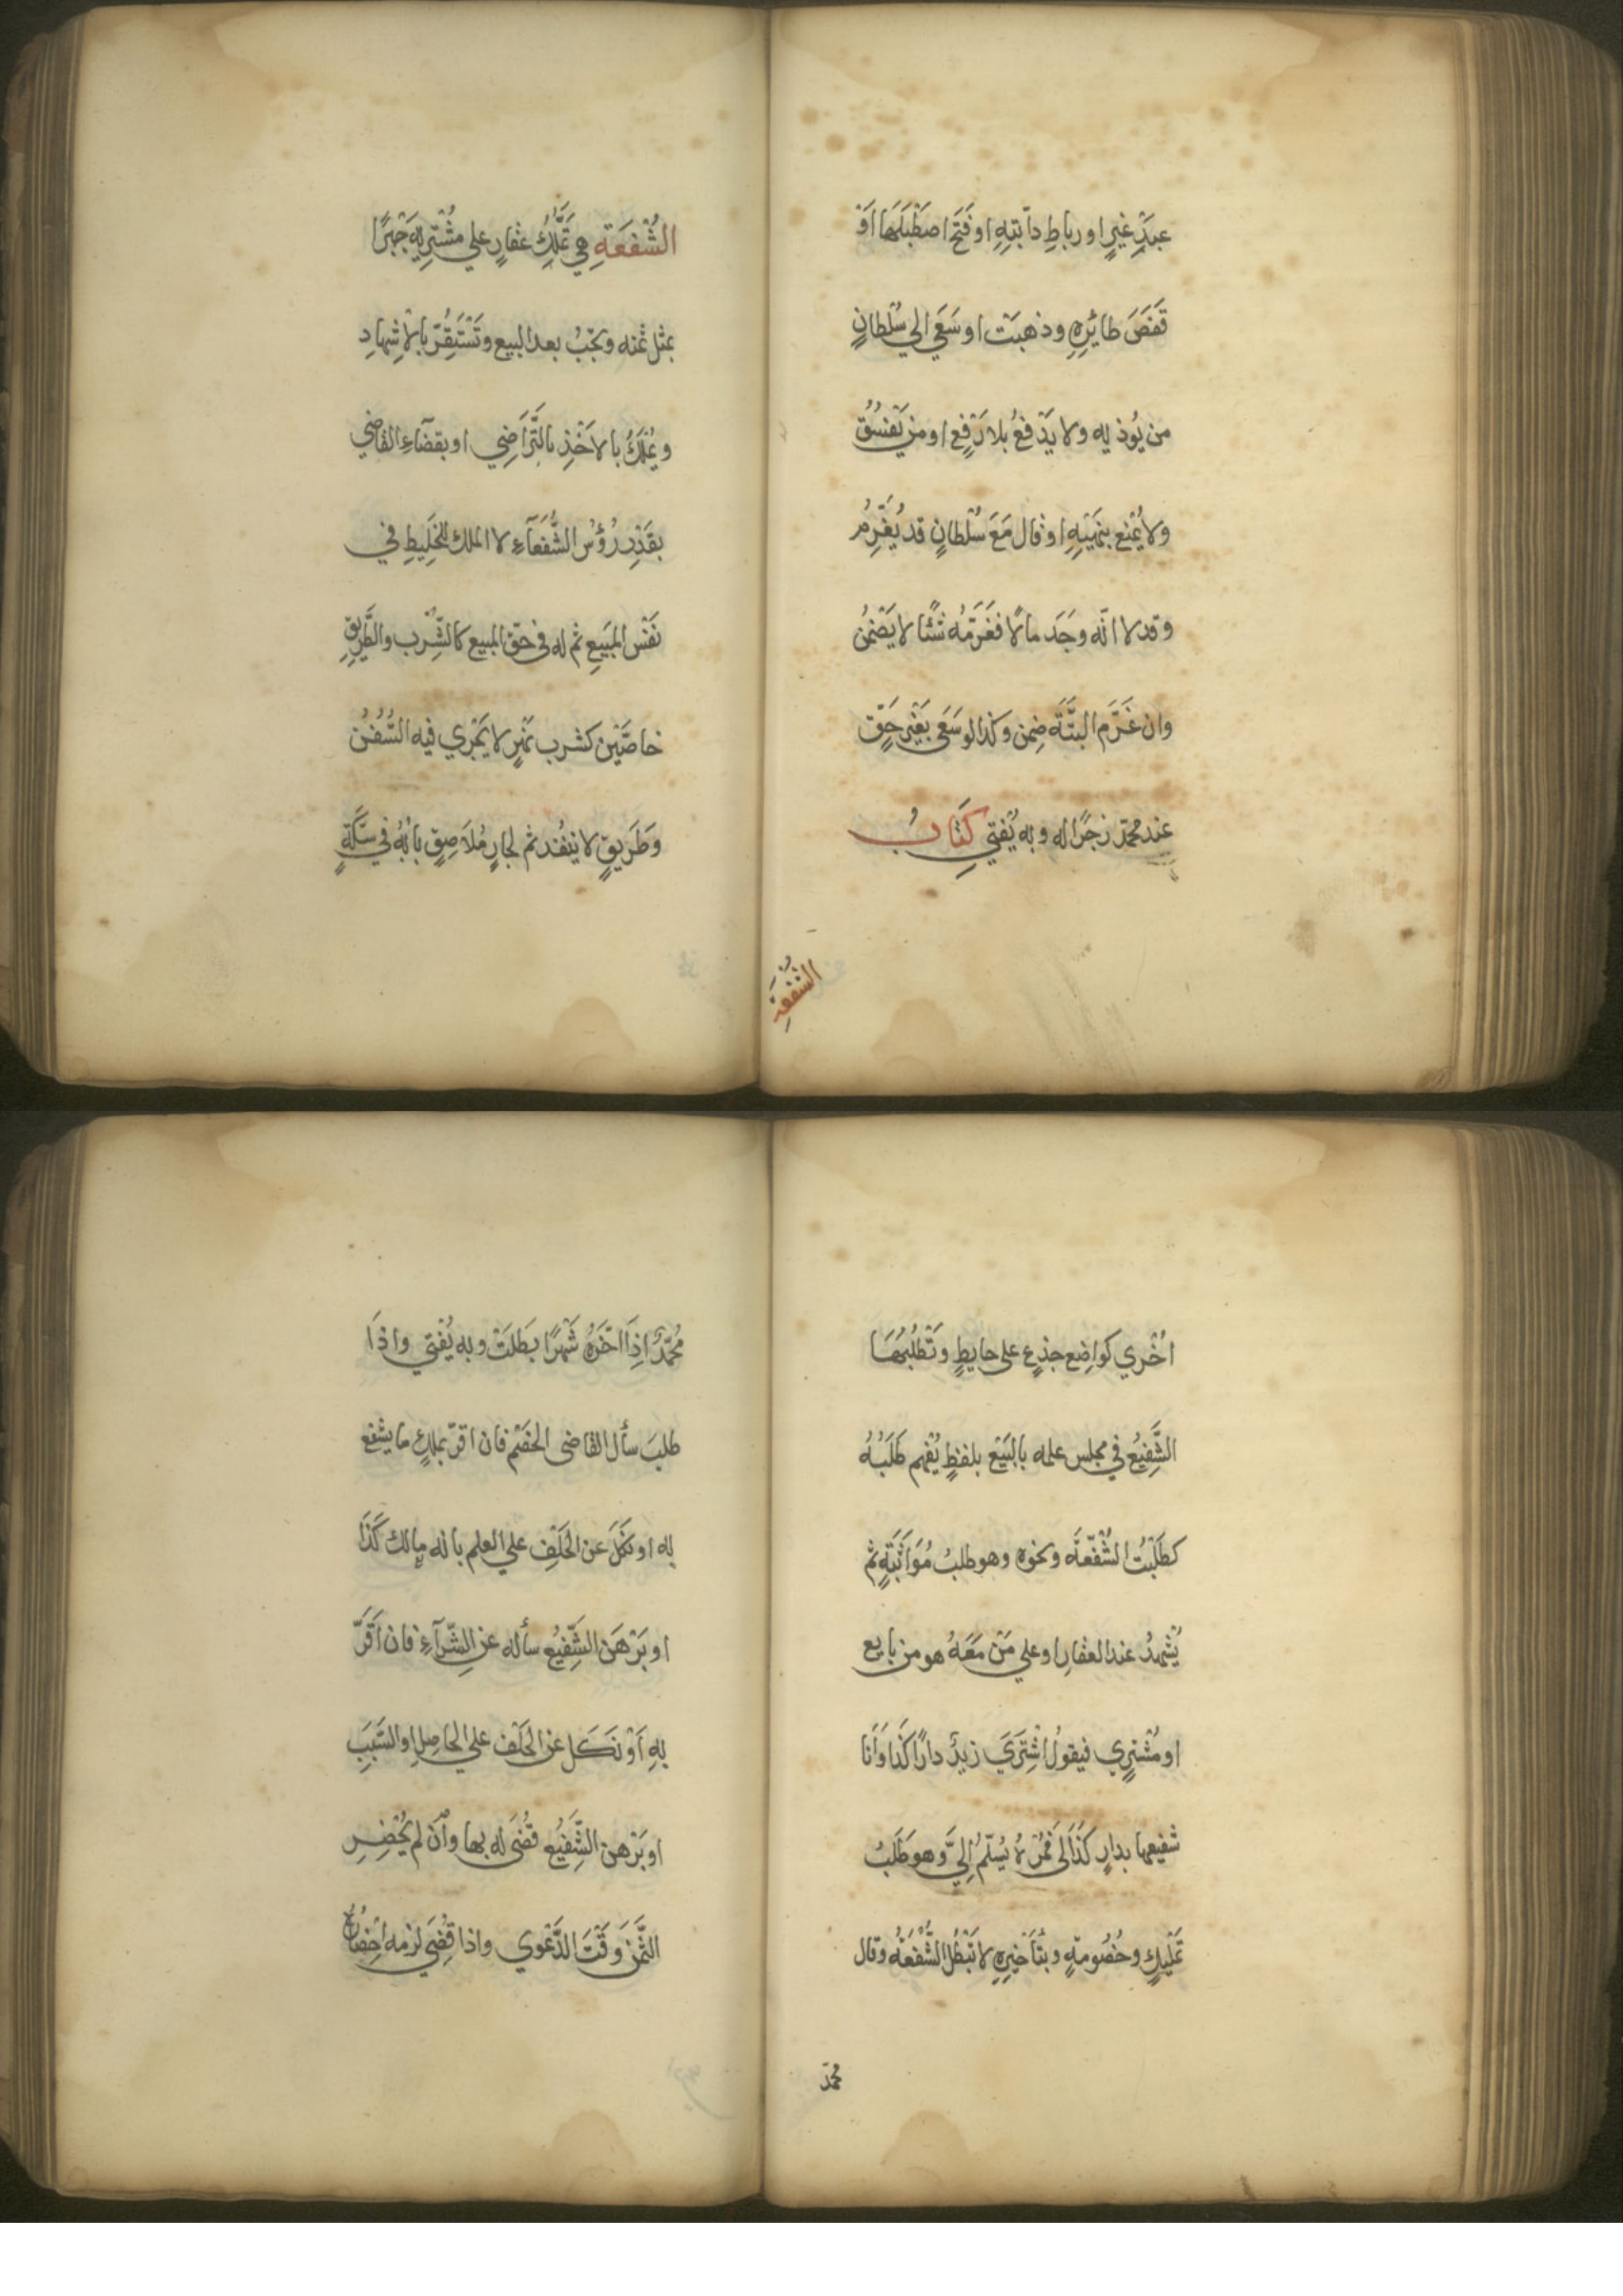 عبدِ غيرٍ او رباطِ دآبتِهِ او فَتَحَ اصطَبَلَهَا اَوْ
قَفَصَ طائِرِهِ وذهبَتْ او سَعَي الي سُلطانٍ
من يُوذيه ولا يَدْفعُ بلا رَفعٍ او من يَفْسُقُ
ولا يُمْنع بنَهْيِهِ او قال مَعَ سُلْطانٍ قد يُغَرِّمُ
وقد لا انّه وجَدَ مالًا فغَرّمَهُ شَئًا لا يَضْمَنُ
وان غَرَّم البتَّةَ ضمِن وكذا لو سَعَى بغَيْرِ حَقٍّ
عند محمّد زجْرًا له وبه يُفتي كتَابُ
الشُّفعَةِ
الشُّفْعَةِ هي تَمَلُّكُ عقارٍ علي مُشْتَرِيْهِ جَبْرًا
بمثل ثمنه وتجِبُ بعد البيع وتَسْتَقِرّ بالاِشهادِ
ويُمْلَكُ بالاَخْذِ بالتَّرَاضِي او بقضَآءِ القاضِي
بقَدْرِ رُؤسِ الشُّفَعَآءِ لا الملك للخَلِيطِ في
نَفْس المَبيعِ ثم له في حَقّ المبيع كالشِّرْب والطَّرِيقِ
خاصَّيْن كشرب نَهْرٍ لا يَجْرِي فيه السُّفُنُ
وَطَريقٍ لا ينفُد ثم لجارٍ مُلاَصِقٍ بَابُهُ في سِكَّةٍ
اُخْري كواضِع جذعٍ على حايطٍ وتَطْلُبُهَا
الشَّفِيْعُ في مجلس علمه بالبَيْعِ بلفظٍ يُفْهم طَلَبُهُ
كطَلَبْتُ الشُّفْعَةَ ونحوِهِ وهو طلبُ مُوَاثَبَةٍ ثم
يُشْهِدُ عند العقارِ او علي مَنْ مَعَهُ هو من بايع
او مُشْترِي فيقولُ اشْتَرَي زيدٌ دارًا كذا وَاَنا
شفيعها بدارٍ كذَا لي فَمُرْهُ يُسلّمُ اِليَّ وهو طَلَبُ
تمْلِيكٍ وخُصُومةٍ وبتَأخيرِهِ لا تَبْطُل الشُّفْعَةُ وقال
محمّد
مُحمّدٌ اِذَا اخّرَهُ شَهْرًا بَطلَتْ وبه يُفْتي واذَا
طلبَ سأل القاضى الخصْم فان اقرّ بملكِ ما يشفع
به او نَكَلَ عن الحَلْفِ علي العلم بانه مالك كَذَا
او بَرْهَن الشَّفِيْعُ سأله عن الشّرآءِ فان اَقَرَّ
بِهِ اَوْ نَكَل عن الحَلْف علي الحاصِلِ او السَّبَبِ
او بَرْهن الشَّفِيْعُ قُضَى له بها واَن لم يُحْضِرِ
الثَّمَنَ وَقْتَ الدَّعْوي واذا قُضِيَ لزمه اِحْضَارُهُ